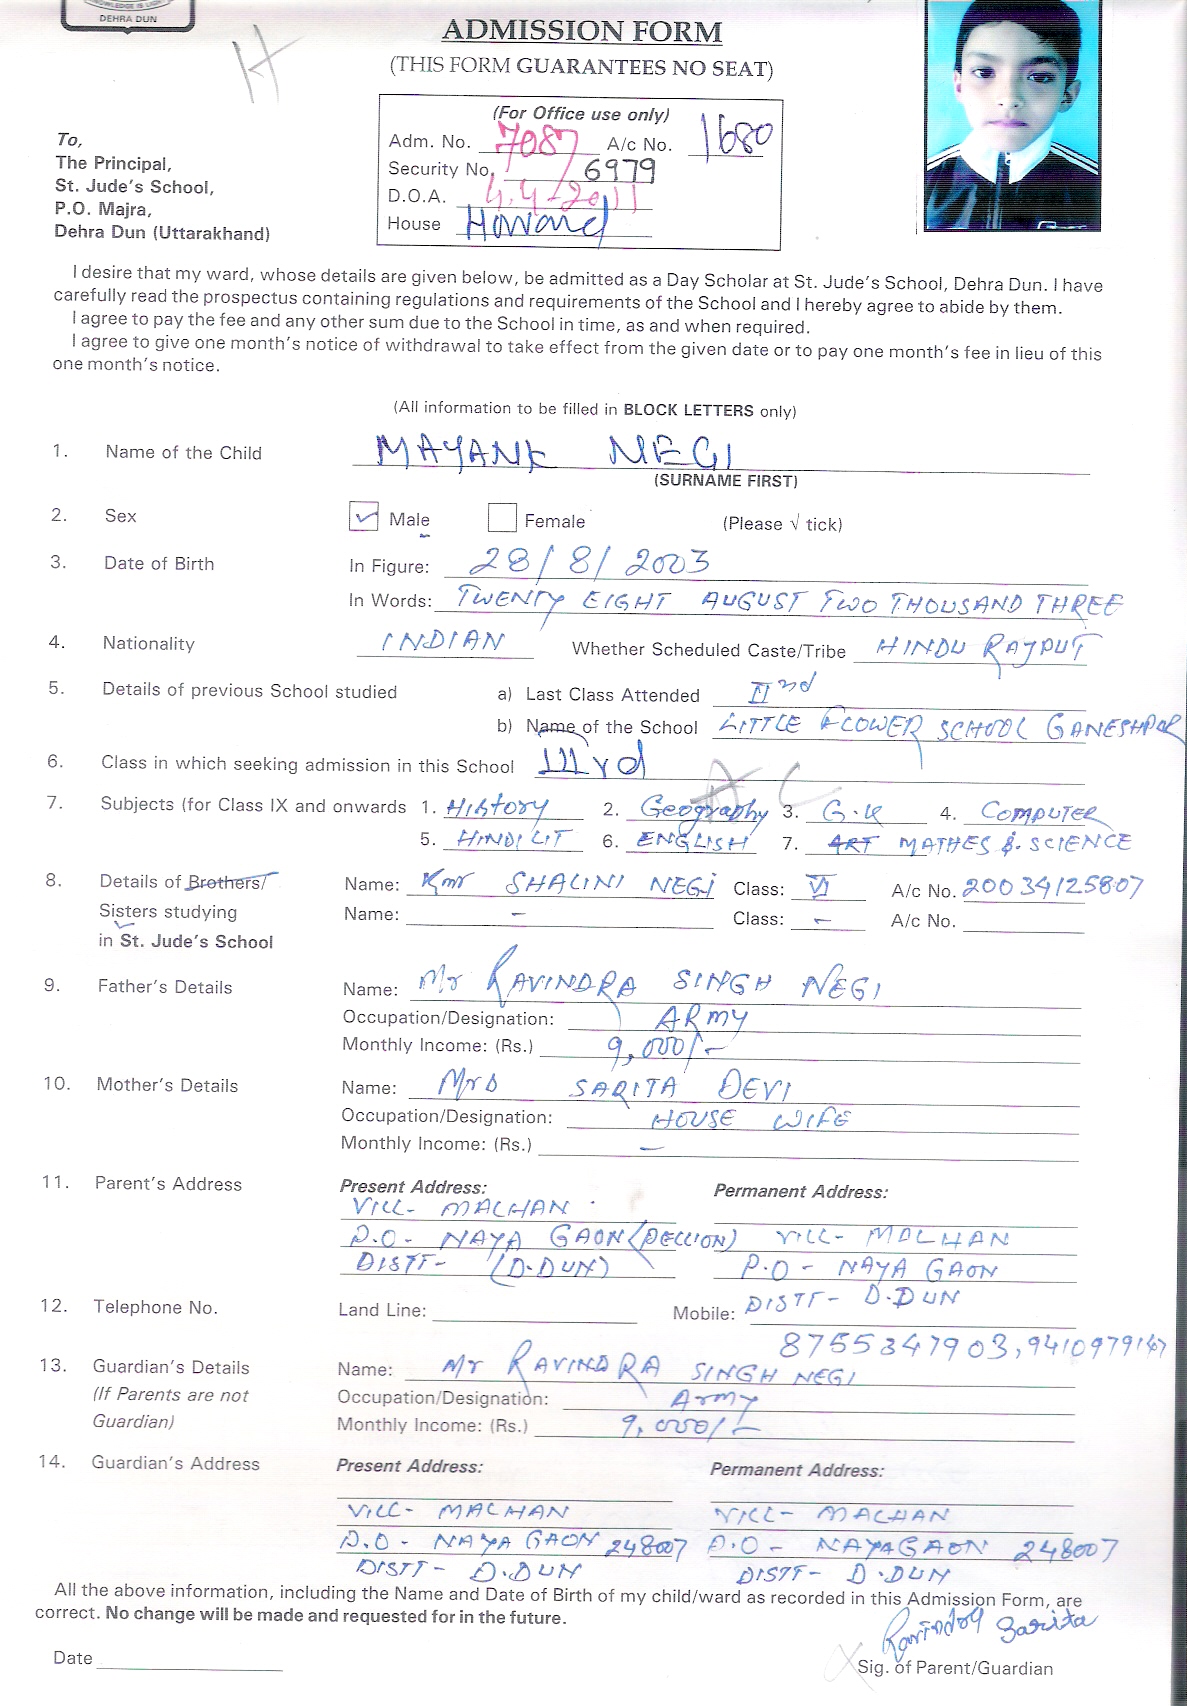 KNOWLEDGE IS LIGHT
DEHRA DUN
ADMISSION FORM
(THIS FORM GUARANTEES NO SEAT)
(For Office use only)
Adm. No. 7087 A/c No. 1680
Security No. 6979
D.O.A. 4.4-2011
House Howard
To,
The Principal,
St. Jude's School,
P.O. Majra,
Dehra Dun (Uttarakhand)
I desire that my ward, whose details are given below, be admitted as a Day Scholar at St. Jude's School, Dehra Dun. I have
carefully read the prospectus containing regulations and requirements of the School and I hereby agree to abide by them.
I agree to pay the fee and any other sum due to the School in time, as and when required.
I agree to give one month's notice of withdrawal to take effect from the given date or to pay one month's fee in lieu of this
one month's notice.
(All information to be filled in BLOCK LETTERS only)
1. Name of the Child MAYANK NEGI
(SURNAME FIRST)
2. Sex ✓ Male Female (Please √ tick)
3. Date of Birth In Figure: 28/8/2003
In Words: TWENTY EIGHT AUGUST TWO THOUSAND THREE
4. Nationality INDIAN Whether Scheduled Caste/Tribe HINDU RAJPUT
5. Details of previous School studied a) Last Class Attended II nd
b) Name of the School LITTLE FLOWER SCHOOL GANESHPUR
6. Class in which seeking admission in this School III rd
7. Subjects (for Class IX and onwards 1. HISTORY 2. Geography 3. G.K 4. COMPUTER
5. HINDI LIT 6. ENGLISH 7. ART MATHES & SCIENCE
8. Details of Brothers/ Name: Kmr SHALINI NEGI Class: VI A/c No. 20034125807
Sisters studying Name: - Class: - A/c No.
in St. Jude's School
9. Father's Details Name: Mr RAVINDRA SINGH NEGI
Occupation/Designation: ARMY
Monthly Income: (Rs.) 9,000/-
10. Mother's Details Name: Mrs SARITA DEVI
Occupation/Designation: HOUSE WIFE
Monthly Income: (Rs.) -
11. Parent's Address Present Address: Permanent Address:
VILL- MALHAN
P.O- NAYA GAON (PELLION) VILL- MALHAN
DISTT- (D.DUN) P.O- NAYA GAON
12. Telephone No. Land Line: Mobile: DISTT- D.DUN
8755347903, 9410979147
13. Guardian's Details Name: Mr RAVINDRA SINGH NEGI
(If Parents are not Occupation/Designation: Army
Guardian) Monthly Income: (Rs.) 9,000/-
14. Guardian's Address Present Address: Permanent Address:
VILL- MALHAN VILL- MALHAN
P.O- NAYA GAON 248007 P.O- NAYAGAON 248007
DISTT- D.DUN DISTT- D.DUN
All the above information, including the Name and Date of Birth of my child/ward as recorded in this Admission Form, are
correct. No change will be made and requested for in the future.
Sarita
Date
Sig. of Parent/Guardian